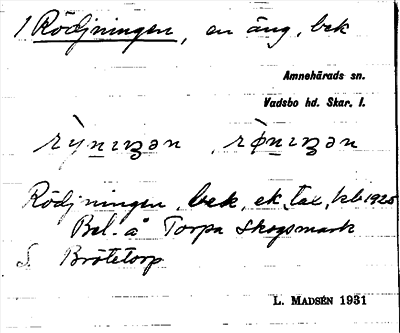 1 Rödjningen, en äng, bek
Amnehärads sn.
Vadsbo hd. Skar. l.
rỳnɪŋən, rø̀nɪŋən
Rödjningen, bek, ek. tax, kb 1925
Bel. å Torpa Skogsmark
S Brötetorp
L. MADSÉN 1931